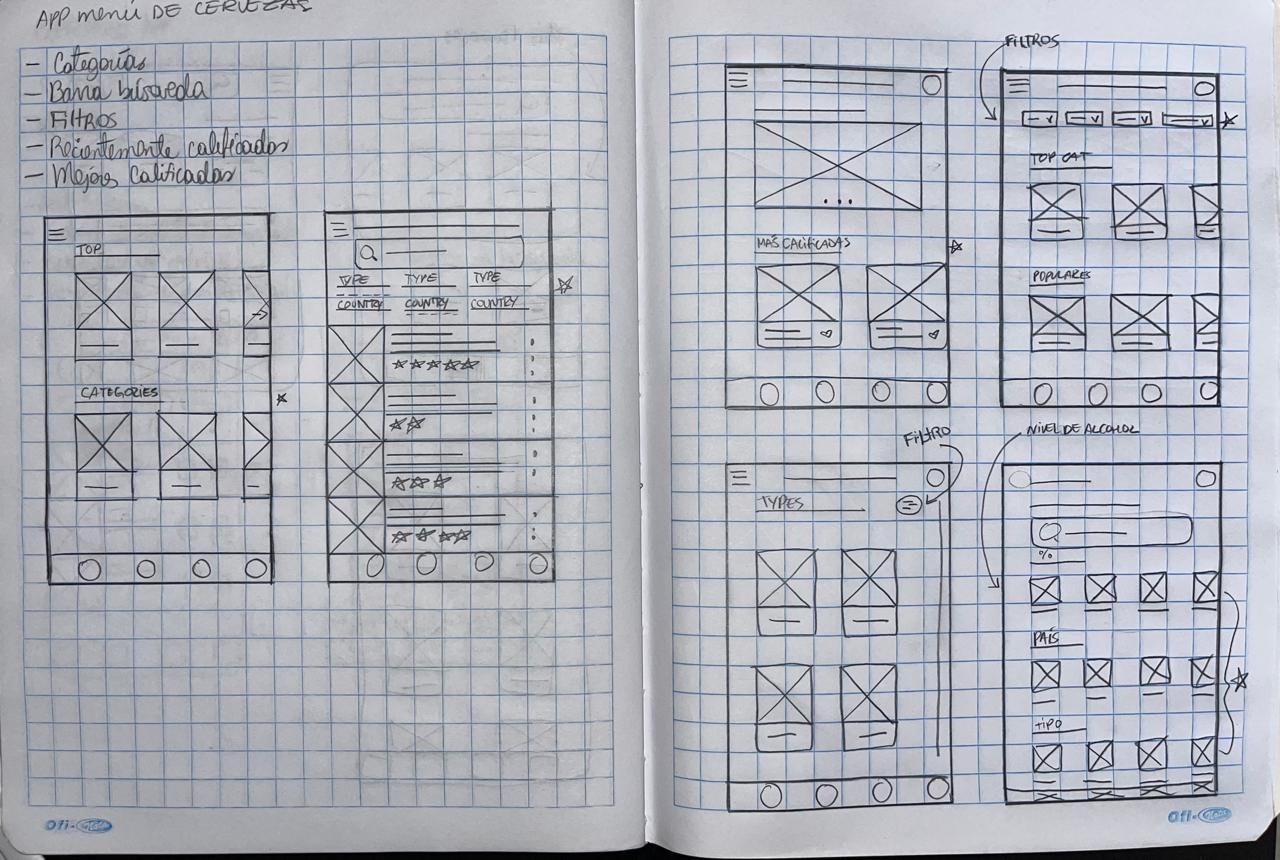 APP menú DE CERVEZAS
- Categorías
- Barra búsqueda
- FILTROS
- Recientemente calificados
- Mejores calificadas
TOP
CATEGORIES
TYPE TYPE TYPE
COUNTRY COUNTRY COUNTRY
Ofi-
FILTROS
MAS CALIFICADAS
TOP CAT
POPULARES
FILTRO
TYPES
NIVEL DE ALCOHOL
%
PAÍS
TIPO
Ofi-